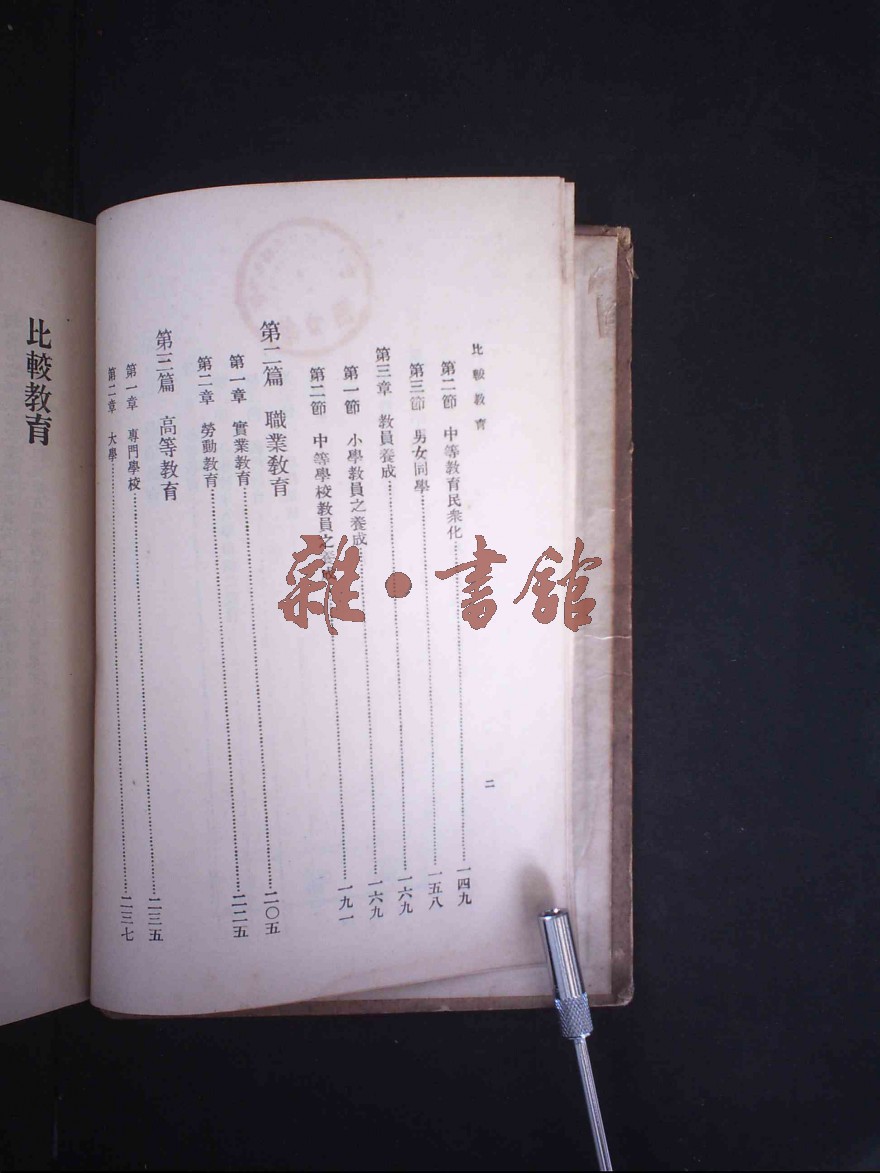 比較教育
二
第二節　中等教育民衆化……一四九
第三節　男女同學……一五八
第三章　教員養成……一六九
第一節　小學教員之養成……一六九
第二節　中等學校教員之養成……一九一
第二篇　職業教育
第一章　實業教育……二〇五
第二章　勞動教育……二二五
第三篇　高等教育
第一章　專門學校……二三五
第二章　大學……二三七
比較教育
雜·書館